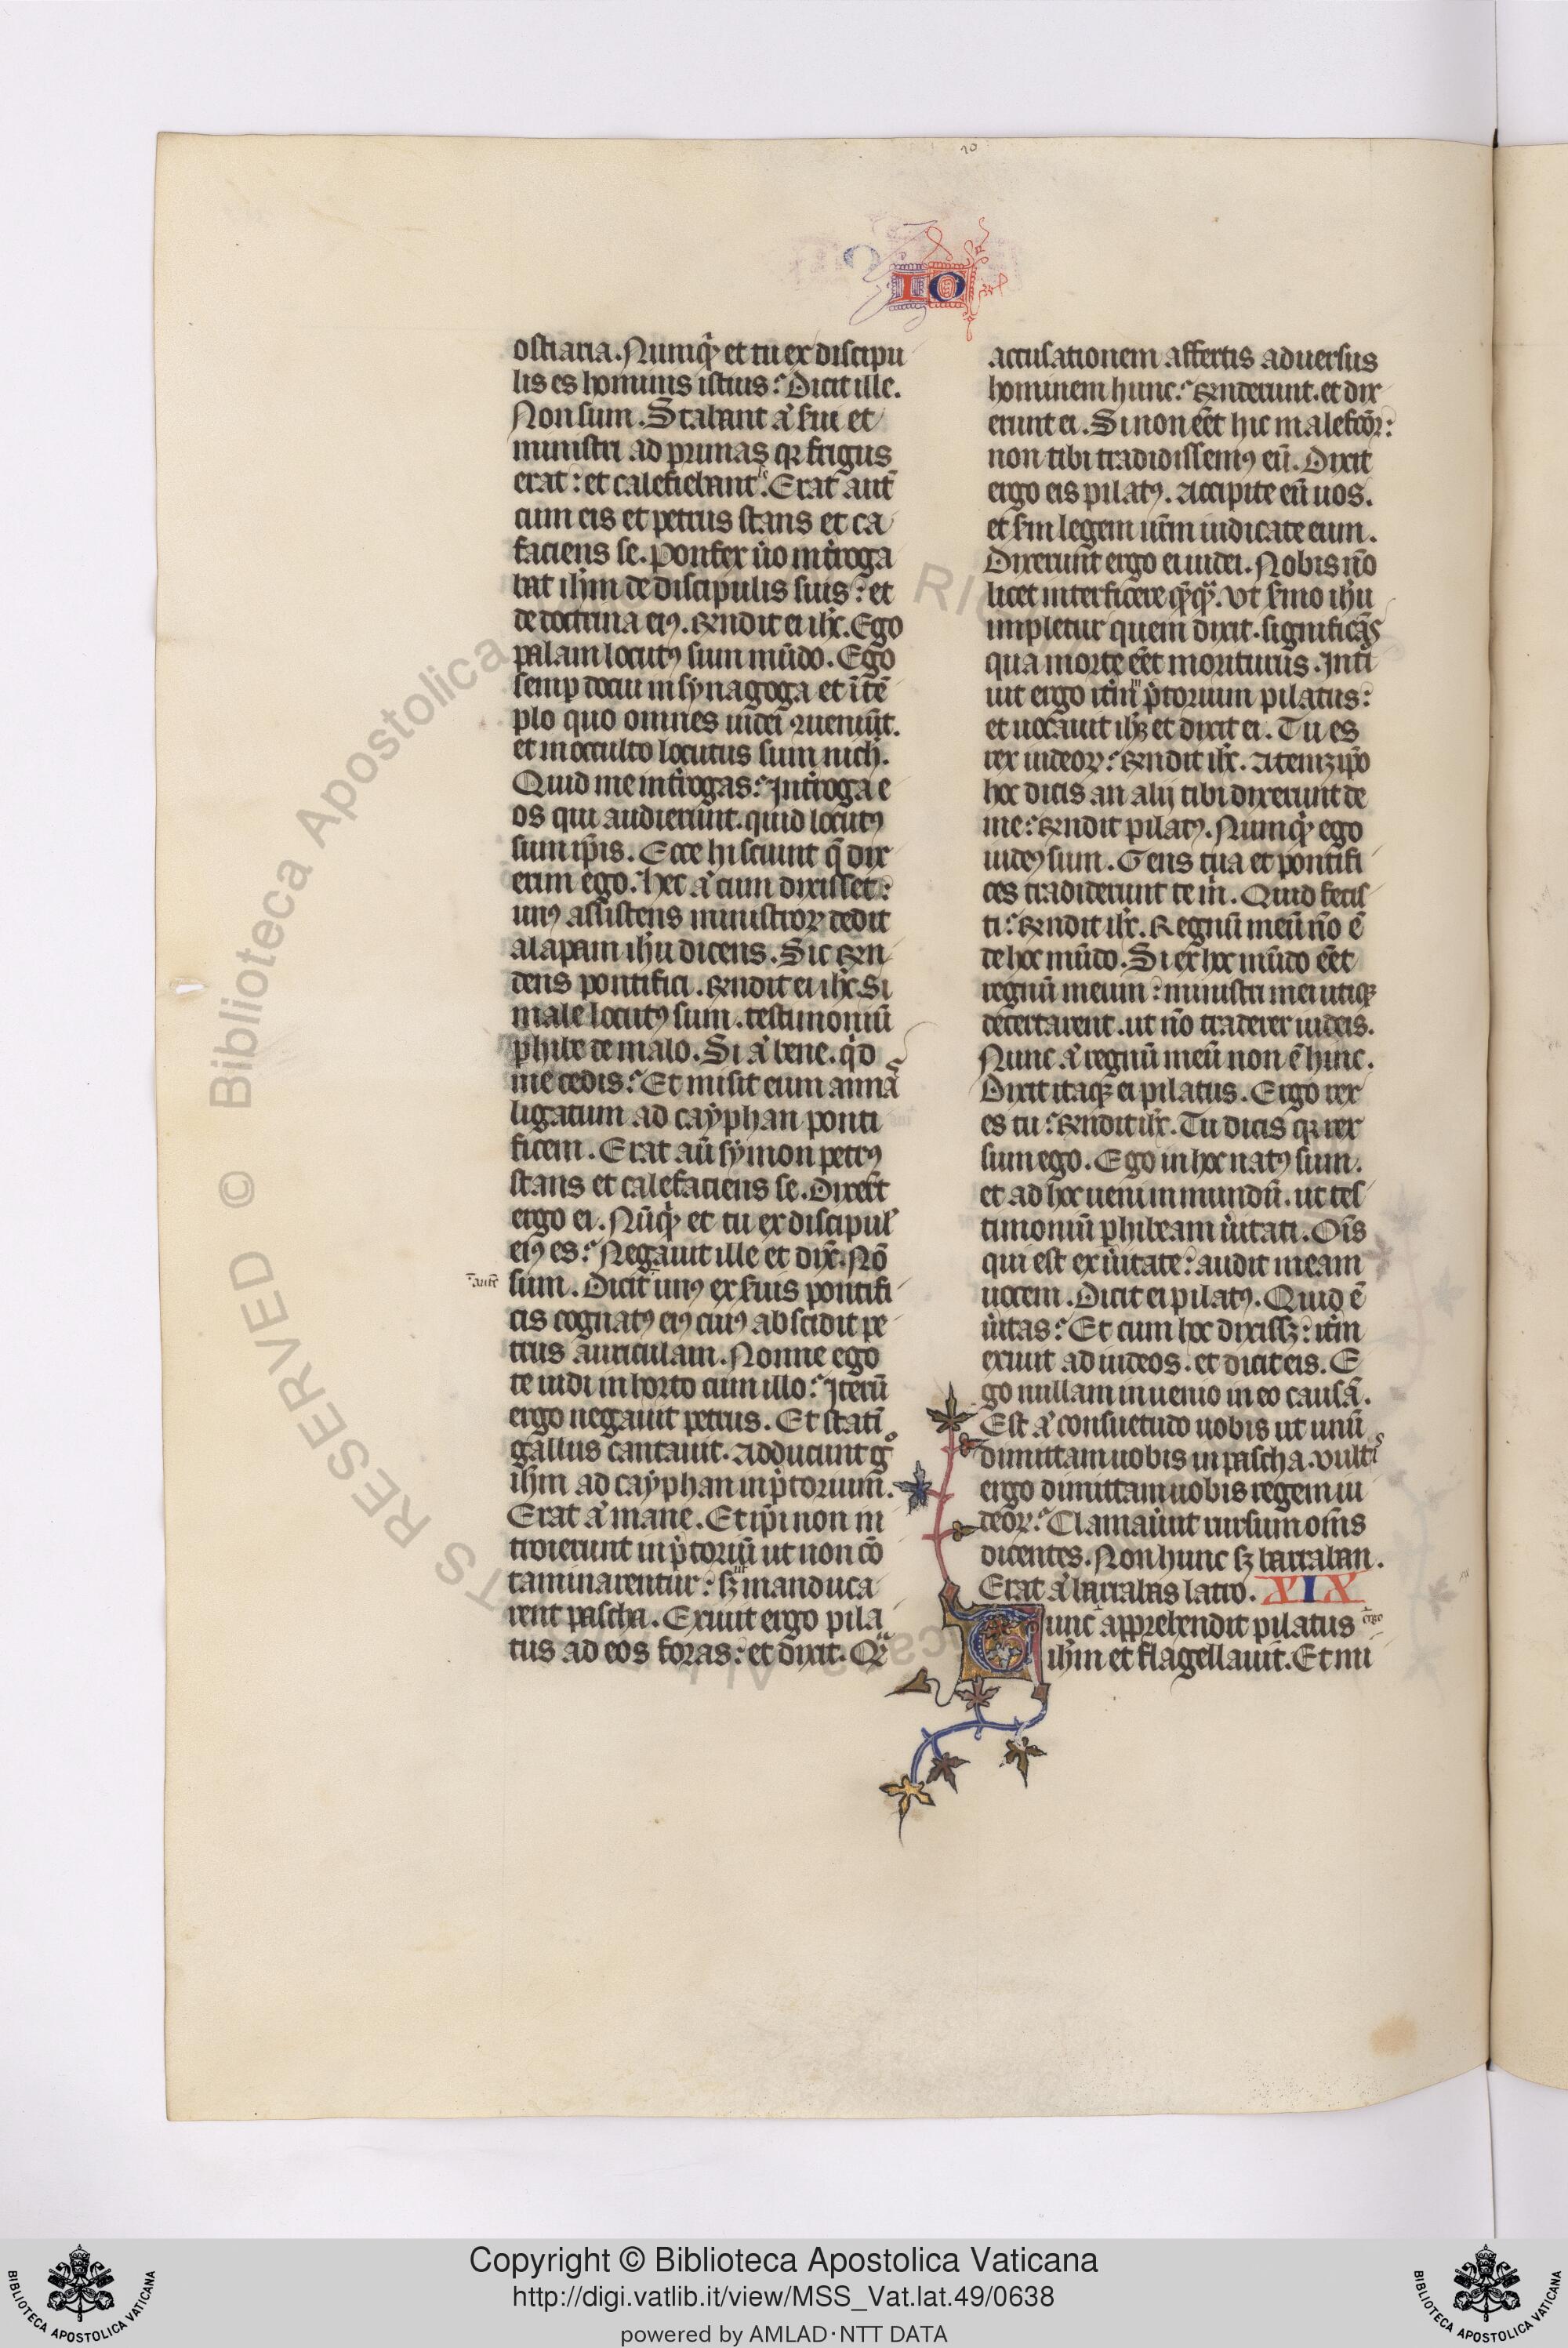 10
IO
ostiaria. Numqͥ et tu ex discipu
lis es hominis istius? Dicit ille.
Non sum. Stabant aͥ s̄ui et
ministri ad prunas qꝛ frigus
erat: et calefiebant se. Erat aut̄
cum eis et petrus stans et ca
faciens se. Pontifex ůo int̾roga
bat ih̄m de discipulis suis: et
de doctrina eiꝰ. R̄ndit ei ih̄c. Ego
palam locutꝰ sum mūdo. Ego
semp̱ docui in synagoga et ī tē
plo quo omnes iudei ꝯueniūt.
et in occulto locutus sum nich̾.
Quid me int̾rogas? Int̾roga e
os qui audierunt. quid locutꝰ
sum ip̄is. Ecce hi sciunt q̄ dix
erim ego. Hec aͥ cum dixisset:
unꝰ assistens ministroꝝ dedit
alapam ih̄u dicens. Sic r̄n
dens pontifici. R̄ndit ei ih̄c. Si
male locutꝰ sum. testimoniū
phibe de malo. Si aͥ bene. qͥd
me cedis? Et misit eum annas
ligatum ad cayphan ponti
ficem. Erat aū symon petrꝰ
stans et calefaciens se. Dixer̄t
ergo ei. Nūqͥ et tu ex discipul̾
eiꝰ es? Negauit ille et dix̄. Nō
sum. Dicit unꝰ ex s̄uis pontifi
cis cognatꝰ eiꝰ cuiꝰ abscidit pe
trus auriculam. Nonne ego
te uidi in horto cum illo? Iterū
ergo negauit petrus. Et statī
gallus cantauit. Adducunt gͦ
ih̄m ad cayphan in p̄torium.
Erat aͥ mane. Et ip̄i non in
troierunt in p̄toriū ut non cō
taminarentur: sꝫ ut manduca
rent pascha. Exiuit ergo pila
tus ad eos foras: et dixit. Qͣꝫ
accusationem affertis aduersus
hominem hunc? R̄nderunt. et dix
erunt ei. Si non eēt hic malefcōr:
non tibi tradidissemꝰ eū. Dixit
ergo eis pilatꝰ. Accipite eū uos.
et s̄m legem ur̄m iudicate eum.
Dixerunt ergo ei iudei. Nobis nō
licet interficere qͫqͣꝫ. Ut s̄mo ih̄u
impletur quem dixit. significās
qua morte eēt moriturus. Intͥ
uit ergo it̾m in p̄torium pilatus:
et uocauit ih̄ꝫ et dixit ei. Tu es
rex iudeoꝝ? R̄ndit ih̄c. A temꝫip̄o
hoc dicis an alij tibi dixerunt de
me? R̄ndit pilatꝰ. Numqͥ ego
iudeꝰ sum. Gens tua et pontifi
ces tradiderunt te m̾. Quid fecis
ti? R̄ndit ih̄c. Regnū meū nō ē
de hoc mūdo. Si ex hoc mūdo eēt
regnū meum: ministri mei utiqꝫ
decertarent. ut nō traderer iudeis.
Nunc aͥ regnū meū non ē hinc.
Dixit itaqꝫ ei pilatus. Ergo rex
es tu? R̄ndit ih̄c. Tu dicis qꝛ rex
sum ego. Ego in hoc natꝰ sum.
et ad hoc ueni in mundū. ut tes
timoniū phibeam ůitati. Om̄s
qui est ex ůitate: audit meam
uocem. Dicit ei pilatꝰ. Quid ē
ůitas? Et cum hoc dixissꝫ: it̾m
exiuit ad iudeos. et dicit eis. E
go nullam inuenio in eo causā.
Est aͥ consuetudo uobis ut unū
dimittam uobis in pascha. uultis
ergo dimittam uobis regem iu
deoꝝ? Clamauer̄unt rursum om̄s
dicentes. Non hunc sꝫ barraban.
Erat aͥ barrabas latro. XIX
Tunc apprehendit pilatus ergo
ih̄m et flagellauit. Et mi
© Biblioteca Apostolica
Copyright © Biblioteca Apostolica Vaticana
http://digi.vatlib.it/view/MSS_Vat.lat.49/0638
powered by AMLAD·NTT DATA
BIBLIOTECA APOSTOLICA VATICANA
BIBLIOTECA APOSTOLICA VATICANA